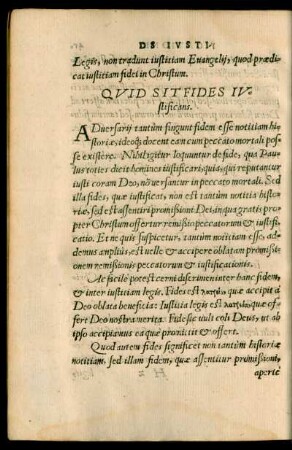 DE IVSTI
Legis, non tradunt iustitiam Euangelij, quod prædi
cat iustitiam fidei in Christum.
QVID SIT FIDES IV=
stificans.
ADuersarij tantùm fingunt fidem esse notitiam hi=
storiæ, ideoq́; docent eam cum peccato mortali pos
se existere. Nihil igitur loquuntur de fide, qua Pau=
lus toties dicit homines iustificari, quia, qui reputantur
iusti coram Deo, nõ uersantur in peccato mortali. Sed
illa fides, quæ iustificat, non est tantùm notitia histo=
riæ, sed est assentiri promissioni Dei, in qua gratis pro=
pter Christum offertur remissio peccatorum & iustifi=
catio. Et ne quis suspicetur, tantùm notitiam esse, ad=
demus ampliùs, est uelle & accipere oblatam promissi=
onem remissionis peccatorum & iustificationis.
Ac facile potest cerni discrimen inter hanc fidem,
& inter iustitiam legis. Fides est λατρεία, quæ accipit à
Deo oblata beneficia: Iustitia legis est λατρεία, quæ of=
fert Deo nostra merita. Fide sic uult coli Deus, ut ab
ipso accipiamus ea quæ promittit & offert.
Quod autem fides significet non tantùm historiæ
notitiam, sed illam fidem, quæ assentitur promissioni,
apertè